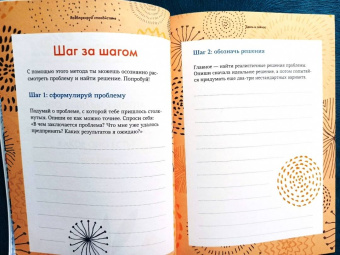 Шаг за шагом
С помощью этого метода ты можешь осознанно рас-
смотреть проблему и найти решение. Попробуй!
Шаг 1: сформулируй проблему
Подумай о проблеме, с которой тебе пришлось столк-
нуться. Опиши ее как можно точнее. Спроси себя:
«В чем заключается проблема? Что мне уже удалось
предпринять? Каких результатов я ожидаю?»
Шаг 2: обозначь решения
Главное — найти реалистичные решения проблемы.
Опиши сначала идеальное решение, а потом попытай-
ся придумать еще два-три нестандартных варианта.